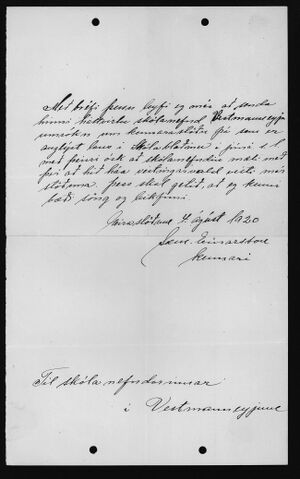 Með bréfi þessu leyfi eg mér að senda
hinni heiðruðu skólanefnd Vestmannaeyja
umsókn um kennarastöðu þá sem er
auglýst laus í Skólablaðinu í júní s l
með þeirri ósk að skólanefndin mæli með
því að hið háa veitingarvald veiti mér
stöðuna. Þess skal getið, að eg kenni
bæði söng og leikfimi
4. ágúst 1920
Einarsson
kennari
Til skólanefndarinnar
í Vestmannaeyjum